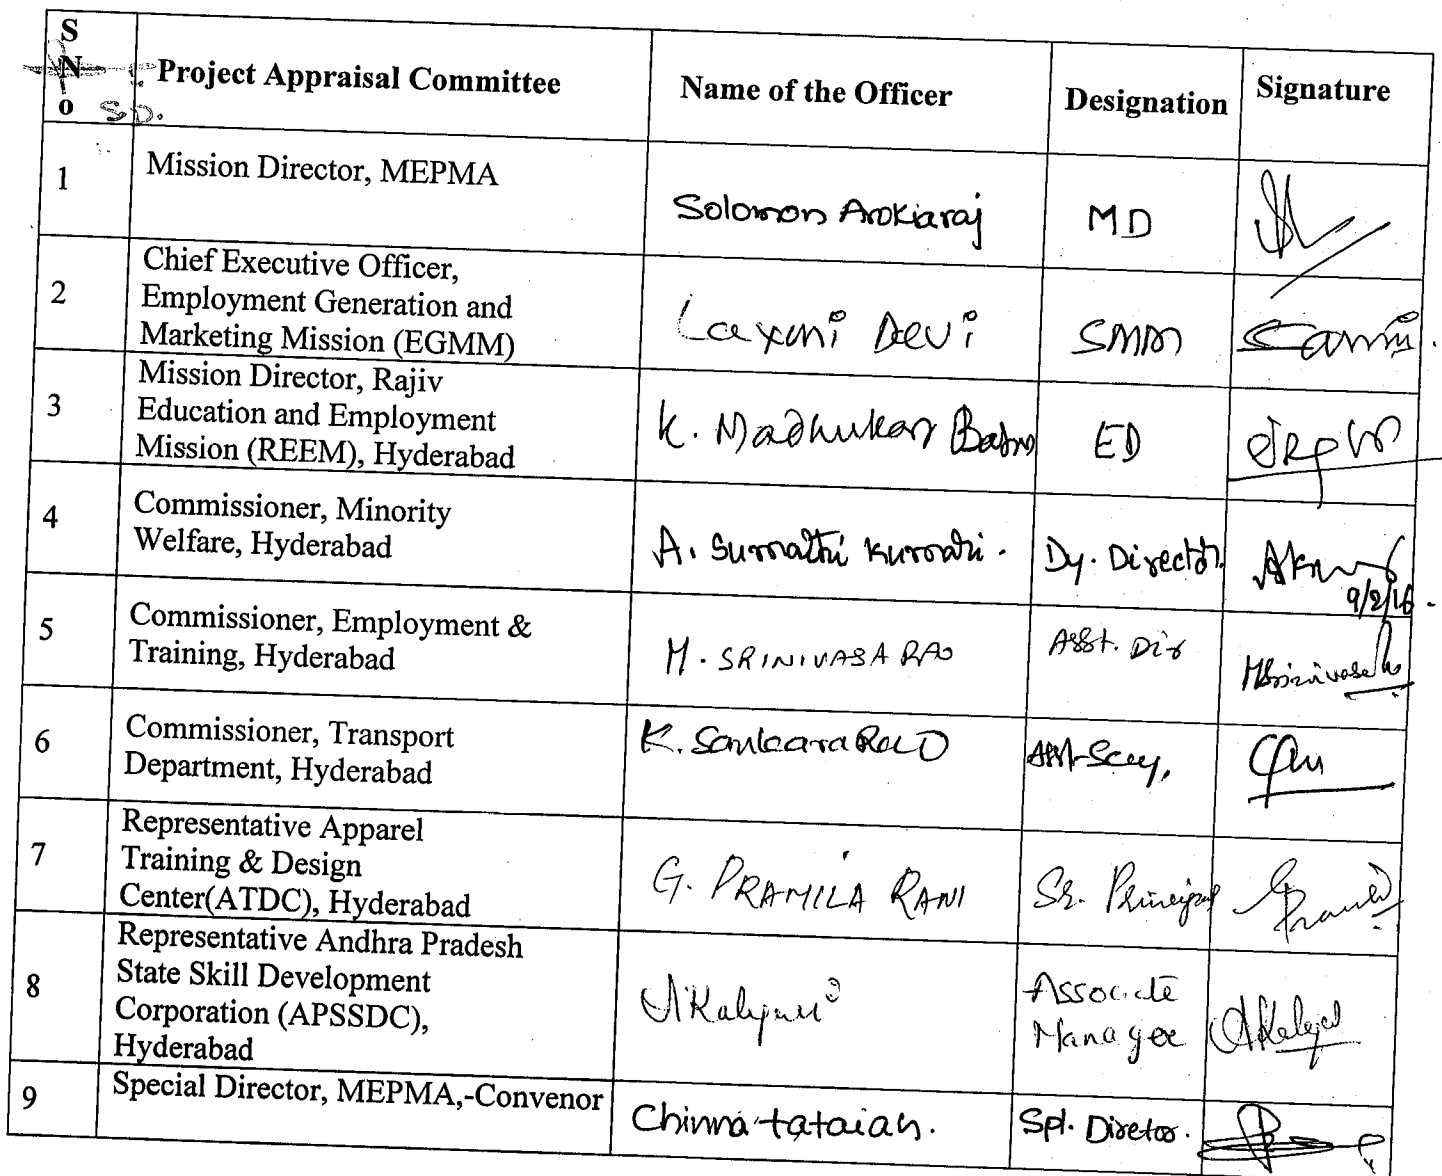 S
N
o
SD.
Project Appraisal Committee
Name of the Officer
Designation
Signature
1
Mission Director, MEPMA
Solomon Arokiaraj
MD
2
Chief Executive Officer,
Employment Generation and
Marketing Mission (EGMM)
Laxmi Devi
SMM
3
Mission Director, Rajiv
Education and Employment
Mission (REEM), Hyderabad
K. Madhukar Babu
ED
4
Commissioner, Minority
Welfare, Hyderabad
A. Sumathi Kumari.
Dy. Director.
9/2/16.
5
Commissioner, Employment &
Training, Hyderabad
M. SRINIVASA RAO
Asst. Dir
MSrinivasa
6
Commissioner, Transport
Department, Hyderabad
K. Sankara Rao
7
Representative Apparel
Training & Design
Center(ATDC), Hyderabad
G. PRAMILA RANI
Sr. Principal
8
Representative Andhra Pradesh
State Skill Development
Corporation (APSSDC),
Hyderabad
Associate
Manager
9
Special Director, MEPMA,-Convenor
Chinna tataiah.
Spl. Diretor.